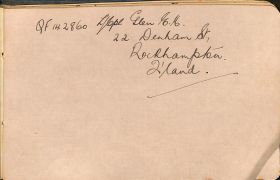 QF142860 L/Cpl Glen K.K.
22 Denham St,
Rockhampton.
Q'land.